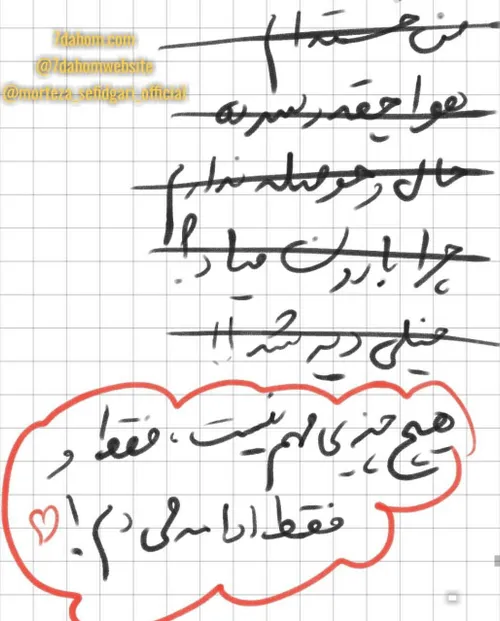 7dahom.com
@7dahomwebsite
@morteza_sefidgari_official
من خسته ام
هوا چقدر سرده
حال و حوصله ندارم
چرا بارون میاد؟!
خیلی دیر شد!!
هیچ چیزی مهم نیست، فقط و
فقط ادامه می دم!